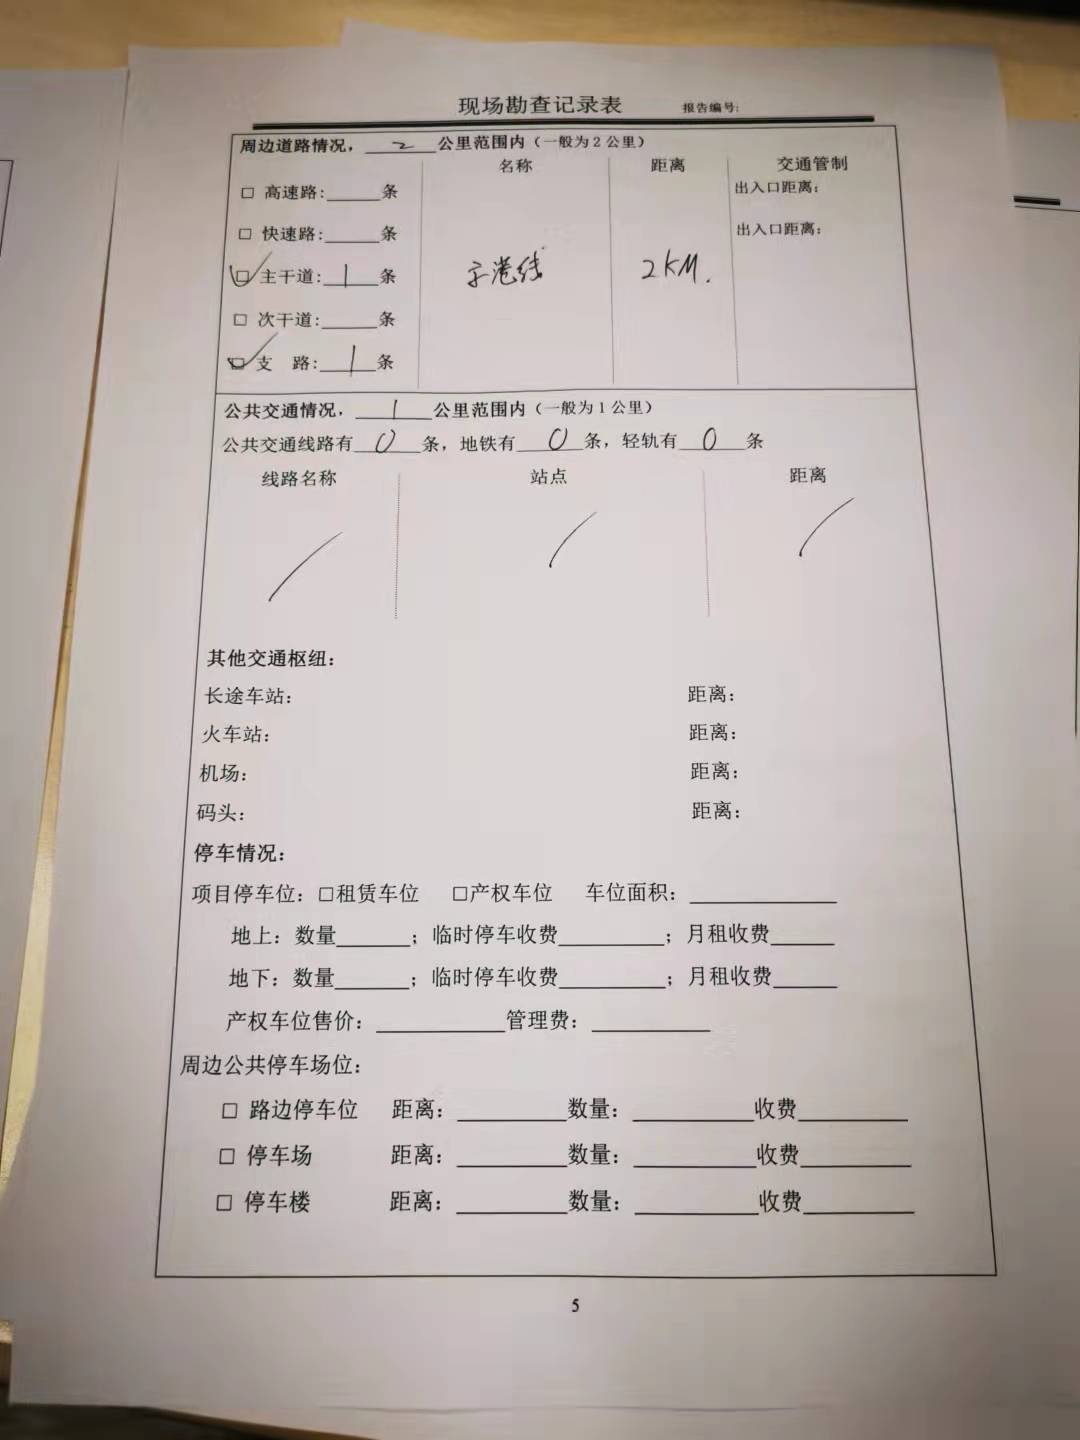 现场勘查记录表 报告编号:
周边道路情况，2公里范围内（一般为2公里）
名称 距离 交通管制
□ 高速路:____条 出入口距离:
□ 快速路:____条 出入口距离:
☑ 主干道: 1 条 港线 2KM.
□ 次干道:____条
☑ 支 路: 1 条
公共交通情况，1公里范围内（一般为1公里）
公共交通线路有0条，地铁有0条，轻轨有0条
线路名称 站点 距离
/ / /
其他交通枢纽:
长途车站: 距离:
火车站: 距离:
机场: 距离:
码头: 距离:
停车情况:
项目停车位: □租赁车位 □产权车位 车位面积:____
地上: 数量____; 临时停车收费____; 月租收费____
地下: 数量____; 临时停车收费____; 月租收费____
产权车位售价:____管理费:____
周边公共停车场位:
□ 路边停车位 距离:____数量:____收费____
□ 停车场 距离:____数量:____收费____
□ 停车楼 距离:____数量:____收费____
5